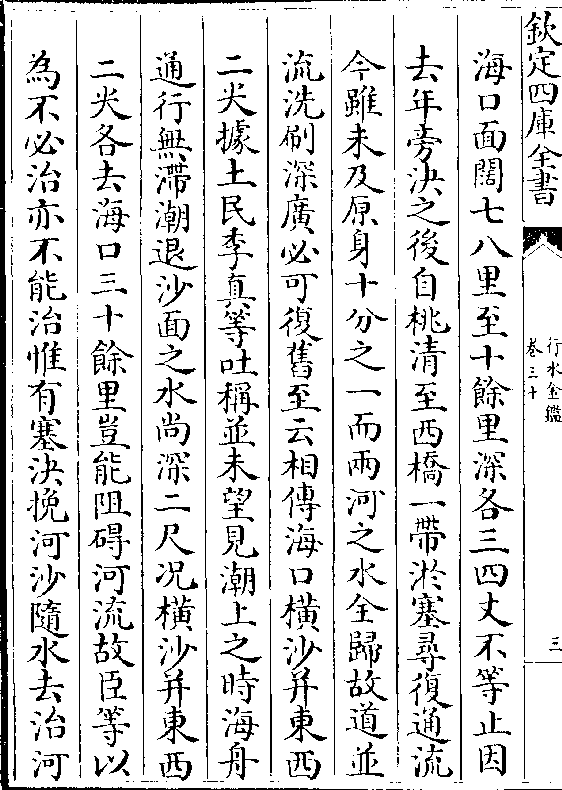 欽定四庫全書
行水金鑑
卷三十
三
海口面闊七八里至十餘里深各三四丈不等止因
去年旁決之後自桃清至西橋一帶淤塞尋復通流
今雖未及原身十分之一而兩河之水全歸故道並
流洗刷深廣必可復舊至云相傳海口橫沙并東西
二尖據土民季真等吐稱並未望見潮上之時海舟
通行無滯潮退沙面之水尚深二尺况橫沙并東西
二尖各去海口三十餘里豈能阻碍河流故臣等以
為不必治亦不能治惟有塞決挽河沙隨水去治河